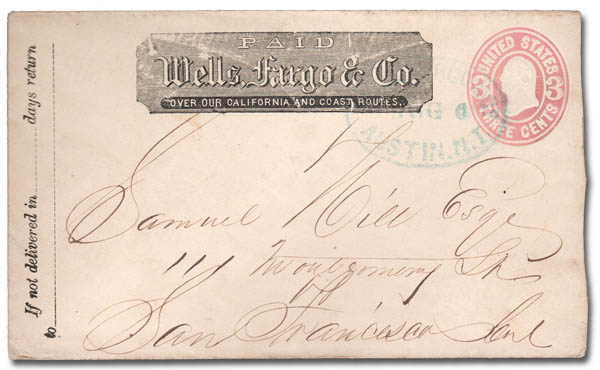 PAID
Wells, Fargo & Co.
OVER OUR CALIFORNIA AND COAST ROUTES.
UNITED STATES
3 3
THREE CENTS
AUG 6
AUSTIN. N.T.
If not delivered in days return
to
Samuel Hill Esqr
111 Montgomery St
San Francisco